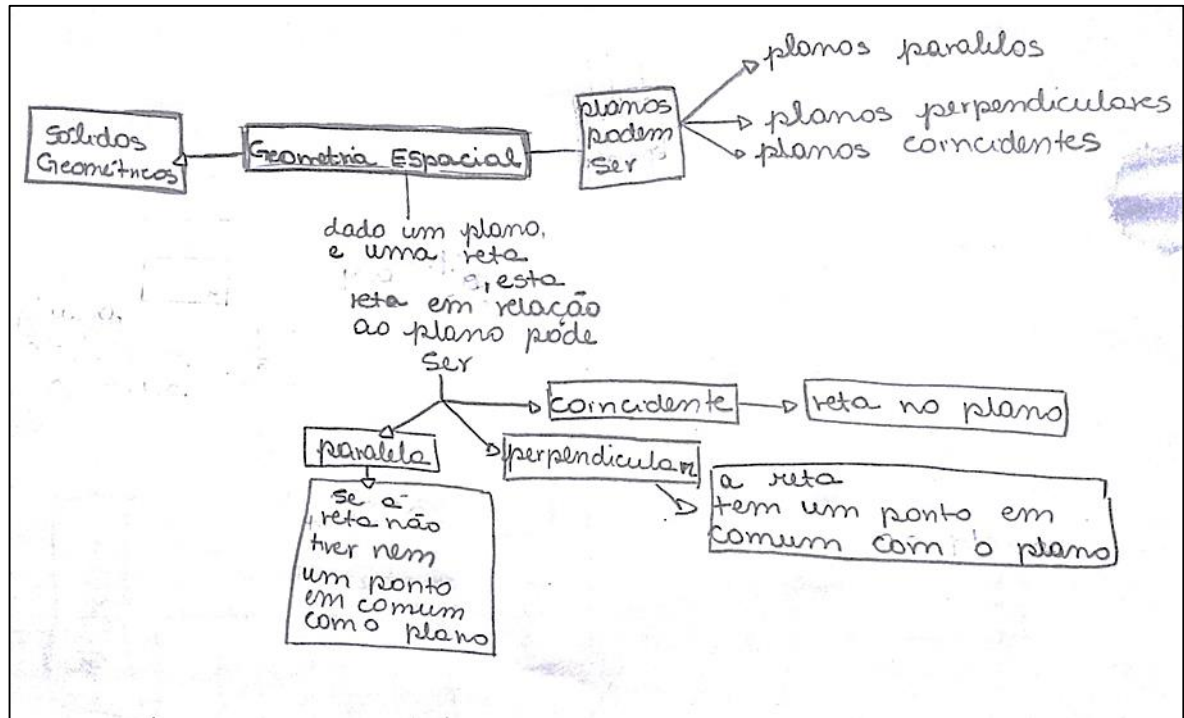 Sólidos
Geométricos
Geometria Espacial
planos
podem
ser
planos paralelos
planos perpendiculares
planos coincidentes
dado um plano,
e uma reta
, esta
reta em relação
ao plano pode
ser
coincidente
reta no plano
paralela
perpendicular
a reta
tem um ponto em
comum com o plano
se a
reta não
tiver nem
um ponto
em comum
com o plano